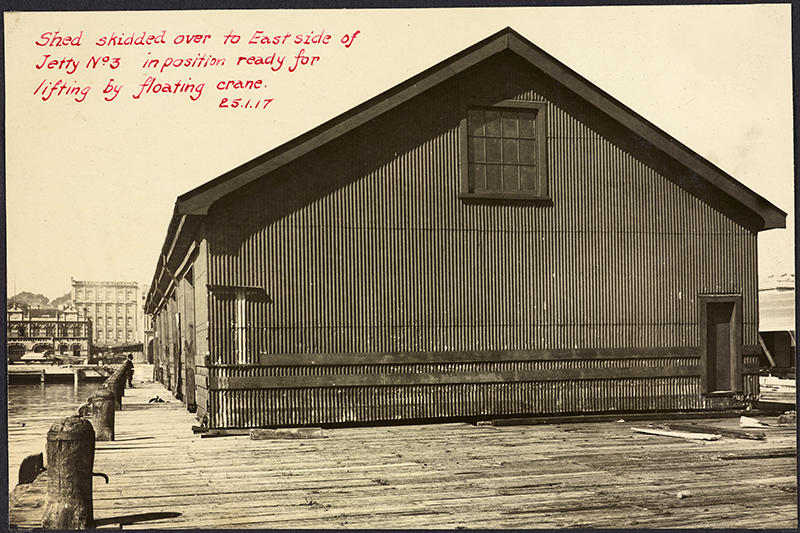 Shed skidded over to East side of
Jetty Nº3 in position ready for
lifting by floating crane.
25.1.17